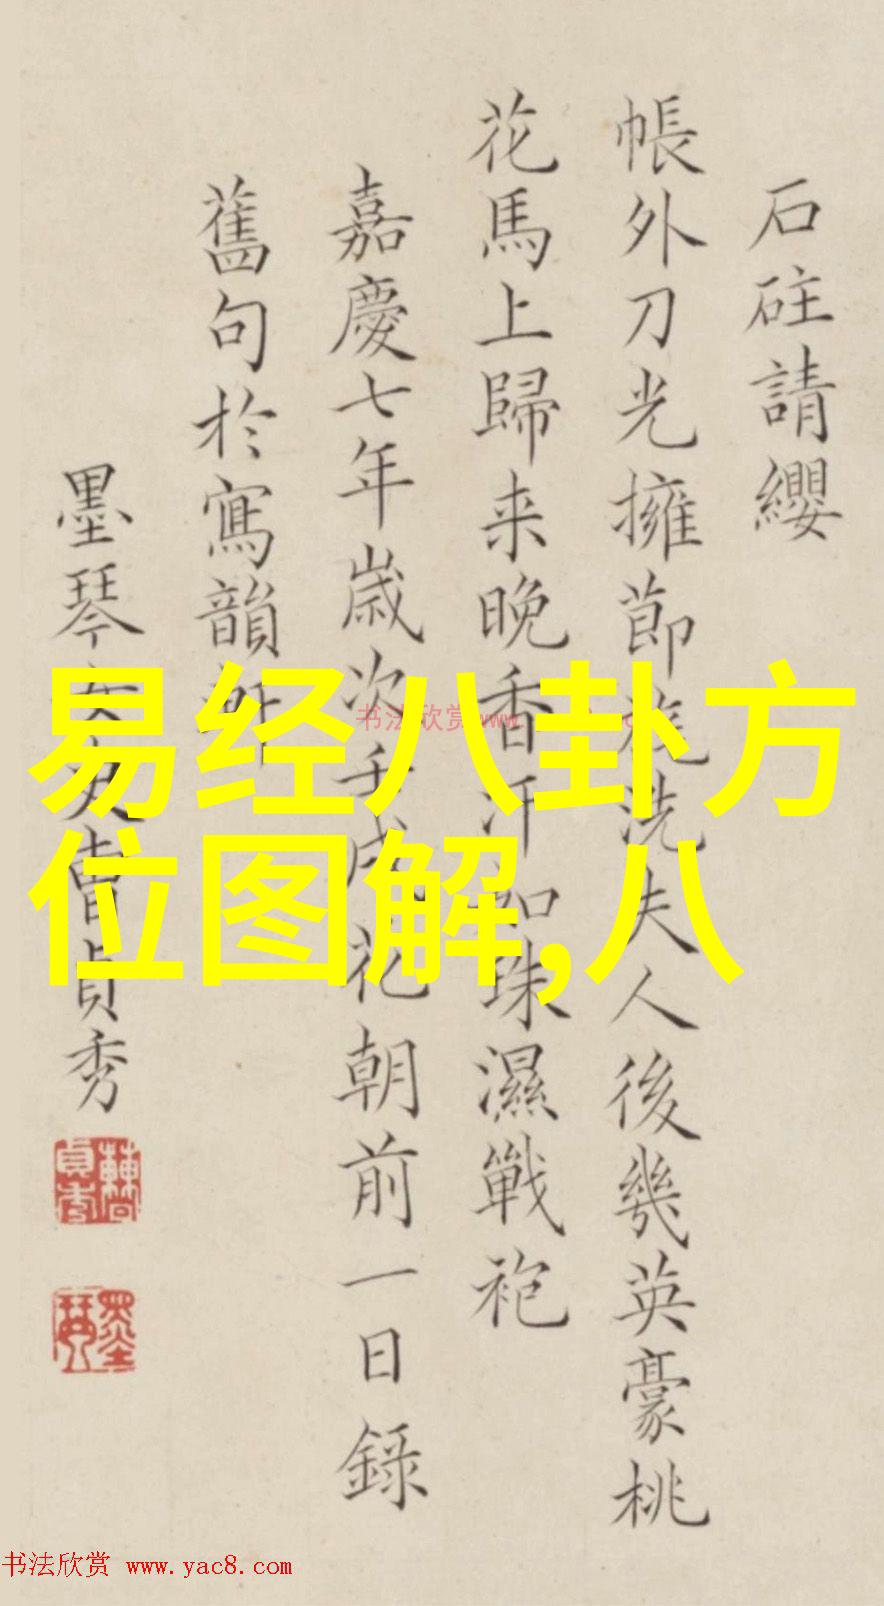 石砫請纓
帳外刀光擁節旄洗夫人後幾英豪桃
花馬上歸来晚香汗如珠濕戰袍
嘉慶七年歲次壬戌花朝前一日錄
舊句於寫韻軒
墨琴女史曹貞秀
易经八卦方
位图解,八
书法欣赏 www.
书法欣赏 www.yac8.com